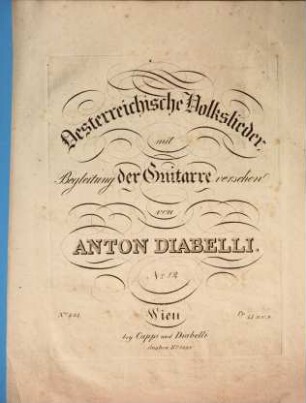 Oesterreichische Volkslieder,
mit
Begleitung der Guitarre versehen
von
ANTON DIABELLI.
No. 12
Wien
bey Cappi und Diabelli